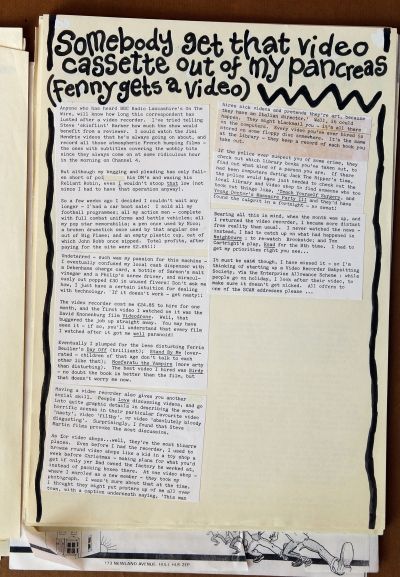 Somebody get that video
cassette out of my pancreas
(Fenny gets a video)
Anyone who has heard BBC Radio Lancashire's On The
Wire, will know how long this correspondent has
lusted after a video recorder. I've been telling
Steve 'skiflint' Barker how much the show would
benefit from a reviewer. I could watch the Jimi
Hendrix videos that he's always going on about, and
record all those atmospheric French humping films -
the ones with subtitles covering the wobbly bits -
since they always come on at some ridiculous hour
in the morning on Channel 4.
But although my begging and pleading has only fall-
ourer
Reliant Robin, even I wouldn't stoop that low (not
since I had to have that operation anyway).
So a few weeks ago I decided I couldn't wait any
longer - I had a car boot sale: I sold all my
football programmes; all my action men - complete
with full combat uniforms and battle vehicles; all
my pop star memorabilia; a pen owned by Bono;
a broken drumstick once used by that angular one
out of Big Flame; and an empty plastic cup, out of
which John Robb once sipped. Total profits, after
paying for the site were £2.85!!!
Undeterred - such was my passion for this machine -
I eventually confused my local cash dispenser with
a Debenhams charge card, a bottle of Sarson's malt
vinegar and a Philip's screw driver, and miracul-
ously out popped £80 in unused fivers! Don't ask me
how, I just have a certain intuition for dealing
with technology. If it doesn't work - get nasty!!
The video recorder cost me £24.85 to hire for one
month, and the first video I watched on it was the
David Cronenberg film Videodrome. Well, that
buggered the job up straight away. You may have
seen it - if so, you'll understand that every film
I watched after it got me well paranoid!
Eventually I plumped for the less disturbing Ferris
Beuller's Day Off (brilliant); Stand By Me (over-
rated - children of that age don't talk to each
other like that); Nosferatu the Vampire (more arty
than disturbing). The best video I hired was Birdy
- no doubt the book is better than the film, but
that doesn't worry me now.
Having a video recorder also gives you another
social skill. People love discussing videos, and go
into quite graphic details in describing the more
horrific scenes in their particular favourite video
'nasty', video 'filthy', or video 'absolutely bloody
disgusting'. Surprisingly, I found that Steve
Martin films provoke the most discussion.
As for video shops...well, they're the most bizarre
places. Even before I had the recorder, I used to
browse round video shops like a kid in a toy shop a
week before Christmas - making plans for what you'd
get if only yer Dad owned the factory he worked at,
instead of packing boxes there. At one video shop -
where I enroled as a new member - they took my
photograph. I wasn't sure about that at the time.
I thought they might put posters up of me all over
town, with a caption underneath saying, 'This man
hires sick videos and pretends they're art, because
they have an Italian director.' Well, it could
happen. They might blackmail you - it's all there
in the records. Every video you've ever hired is
stored on some floppy disc somewhere. It's the same
at the library - they keep a record of each book you
take out.
If the police ever suspect you of some crime, they
check out which library books you've taken out, to
find out what kind of a person you are. If there
had been computers during Jack The Ripper's time,
the police would have just needed to check out the
local library and video shop to find someone who
took out things like,
Young Doctor's
found the culprit in a fortnight - so sweet!
Bearing all this in mind, when the month was up, and
I returned the video recorder, I became more distant
from reality than usual. I never watched the news
instead, I had to catch up on what had happened in
Neighbours; to re-watch Brookside; and Jim
Cartright's play, Road for the 8th time. I had to
get my priorities right you see...
It must be said though, I have missed it - so I'm
thinking of starting up a Video Recorder Babysitting
Society, via the Enterprise Allowance Scheme - while
people go on holiday, I look after their video, to
make sure it doesn't get nicked. All offers to
one of the SCAR addresses please ...
173 NEWLAND AVENUE. HULL HU5 2EP.